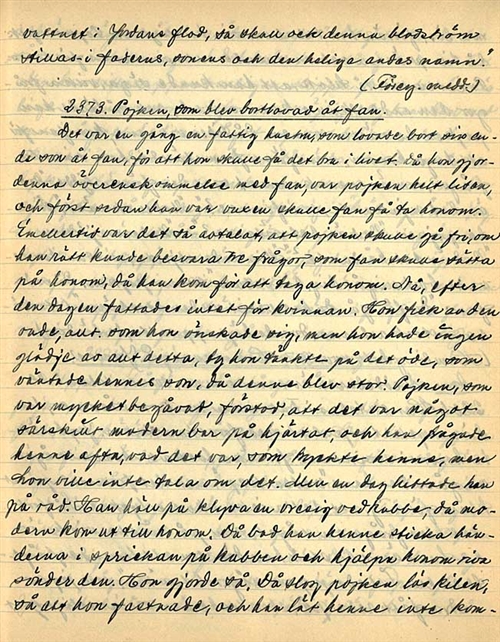 vattnet i Jordans flod, så skall och denna blodström
stillas i faderns, sonens och den heliga andas namn."
(Föreg. medd.)
2373. Pojken, som blev bortlovad åt fan.
Det var en gång en fattig hustru, som lovade bort sin en-
da son åt fan, för att hon skulle få det bra i livet. Då hon gjor-
denna överenskommelse med fan, var pojken helt liten,
och först sedan han var vuxen skulle fan få ta honom.
Emellertid var det så avtalat, att pojken skulle gå fri, om
han rätt kunde besvara tre frågor, som fan skulle sätta
på honom, då han kom för att taga honom. Nå, efter
den dagen fattades intet för kvinnan. Hon fick av den
onde, allt som hon önskade sig, men hon hade ingen
glädje av allt detta, ty hon tänkte på det öde, som
väntade hennes son, då denne blev stor. Pojken, som
var mycket begåvad, förstod, att det var något
särskilt modern bar på hjärtat, och han frågade
henne ofta, vad det var, som tryckte henne, men
hon ville inte tala om det. Men en dag hittade han
på råd. Han höll på klyva en vresig vedkubbe, då mo-
dern kom ut till honom. Då bad han henne sticka hän-
derna i sprickan på kubben och hjälpa honom riva
sönder den. Hon gjorde så. Då slog pojken lös kilen,
så att hon fastnade, och han lät henne inte kom-